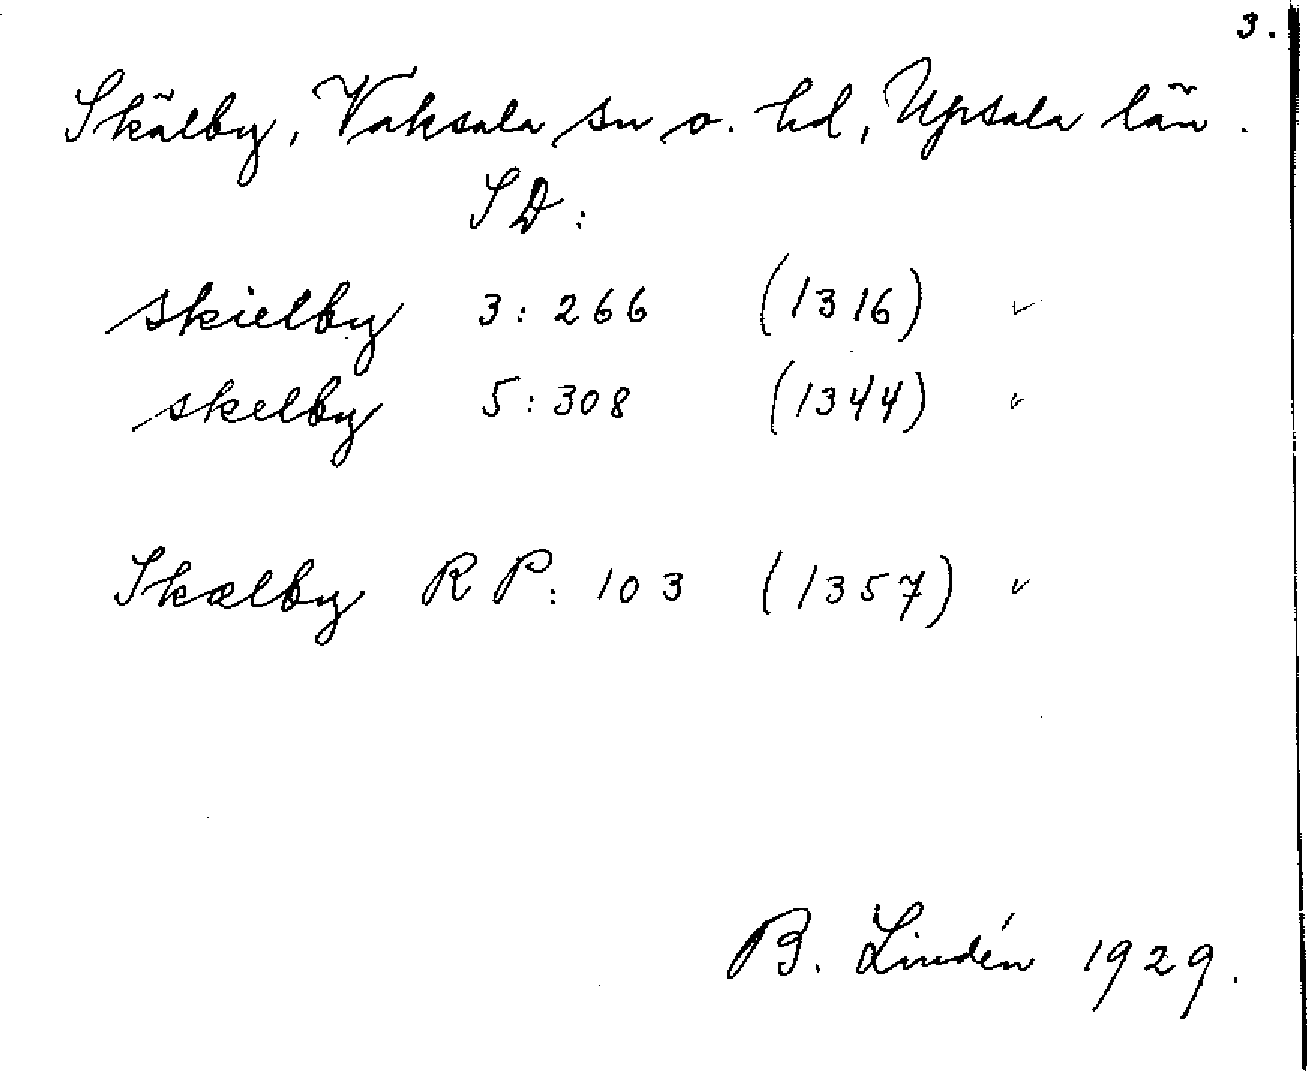 3.
Skälby, Vaksala sn o. hd, Upsala län.
SD:
skielby 3:266 (1316) ✓
skelby 5:308 (1344) ✓
Skælby RP: 103 (1357) ✓
B. Lindén 1929.